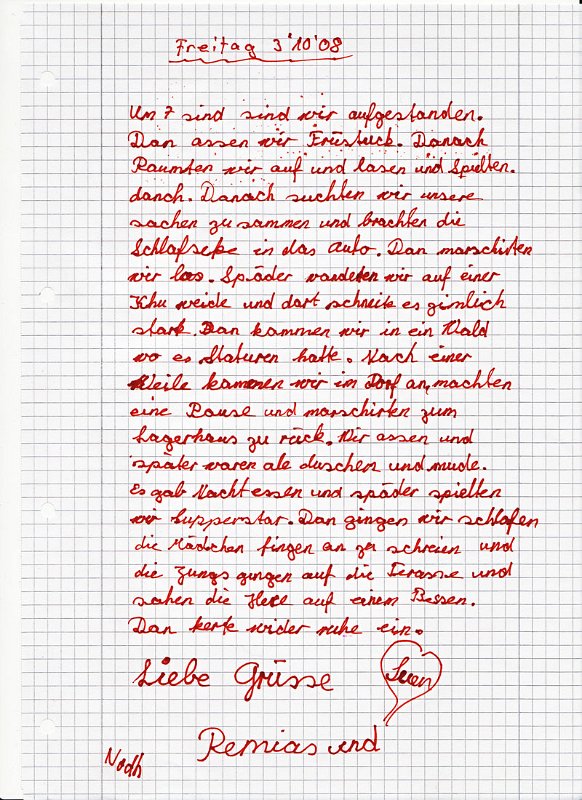 Freitag 3'10'08
Um 7 sind sind wir aufgestanden.
Dan assen wir Früstuck. Danach
Raumten wir auf und lasen und Spielten.
danch. Danach suchten wir unsere
sachen zu sammen und brachten die
Schlafseke in das Auto. Dan marschirten
wir los. Späder wanderten wir auf einer
Khu weide und dort schneite es zimlich
stark. Dan kammen wir in ein Wald
wo es Staturen hatte. Nach einer
Weile kammen wir im Dorf an, machten
eine Pause und marschirten zum
Lagerhaus zu rück. Wir assen und
später waren ale duschen und mude.
Es gab Nacht essen und späder spielten
wir Supperstar. Dan gingen wir schlafen
die Mädchen fingen an zu schreien und
die Jungs gingen auf die Terasse und
sahen die Hexe auf einem Bessen.
Dan kerte wider ruhe ein.
Liebe Grüsse
Remias und